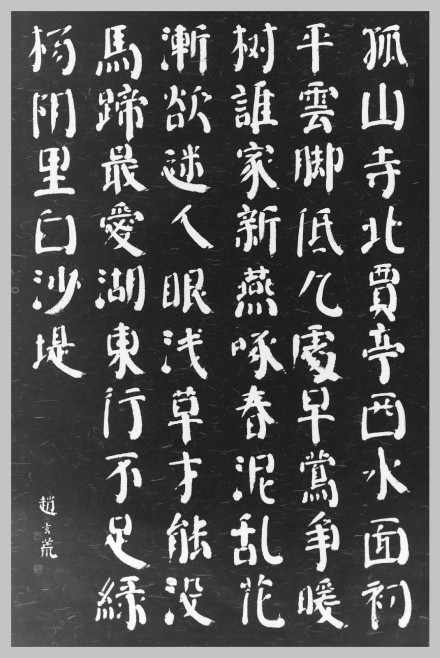 孤山寺北賈亭西水面初
平雲脚低几處早鶯争暖
树誰家新燕啄春泥乱花
漸欲迷人眼浅草才能没
馬蹄最愛湖東行不足緑
杨阴里白沙堤
趙玄荒